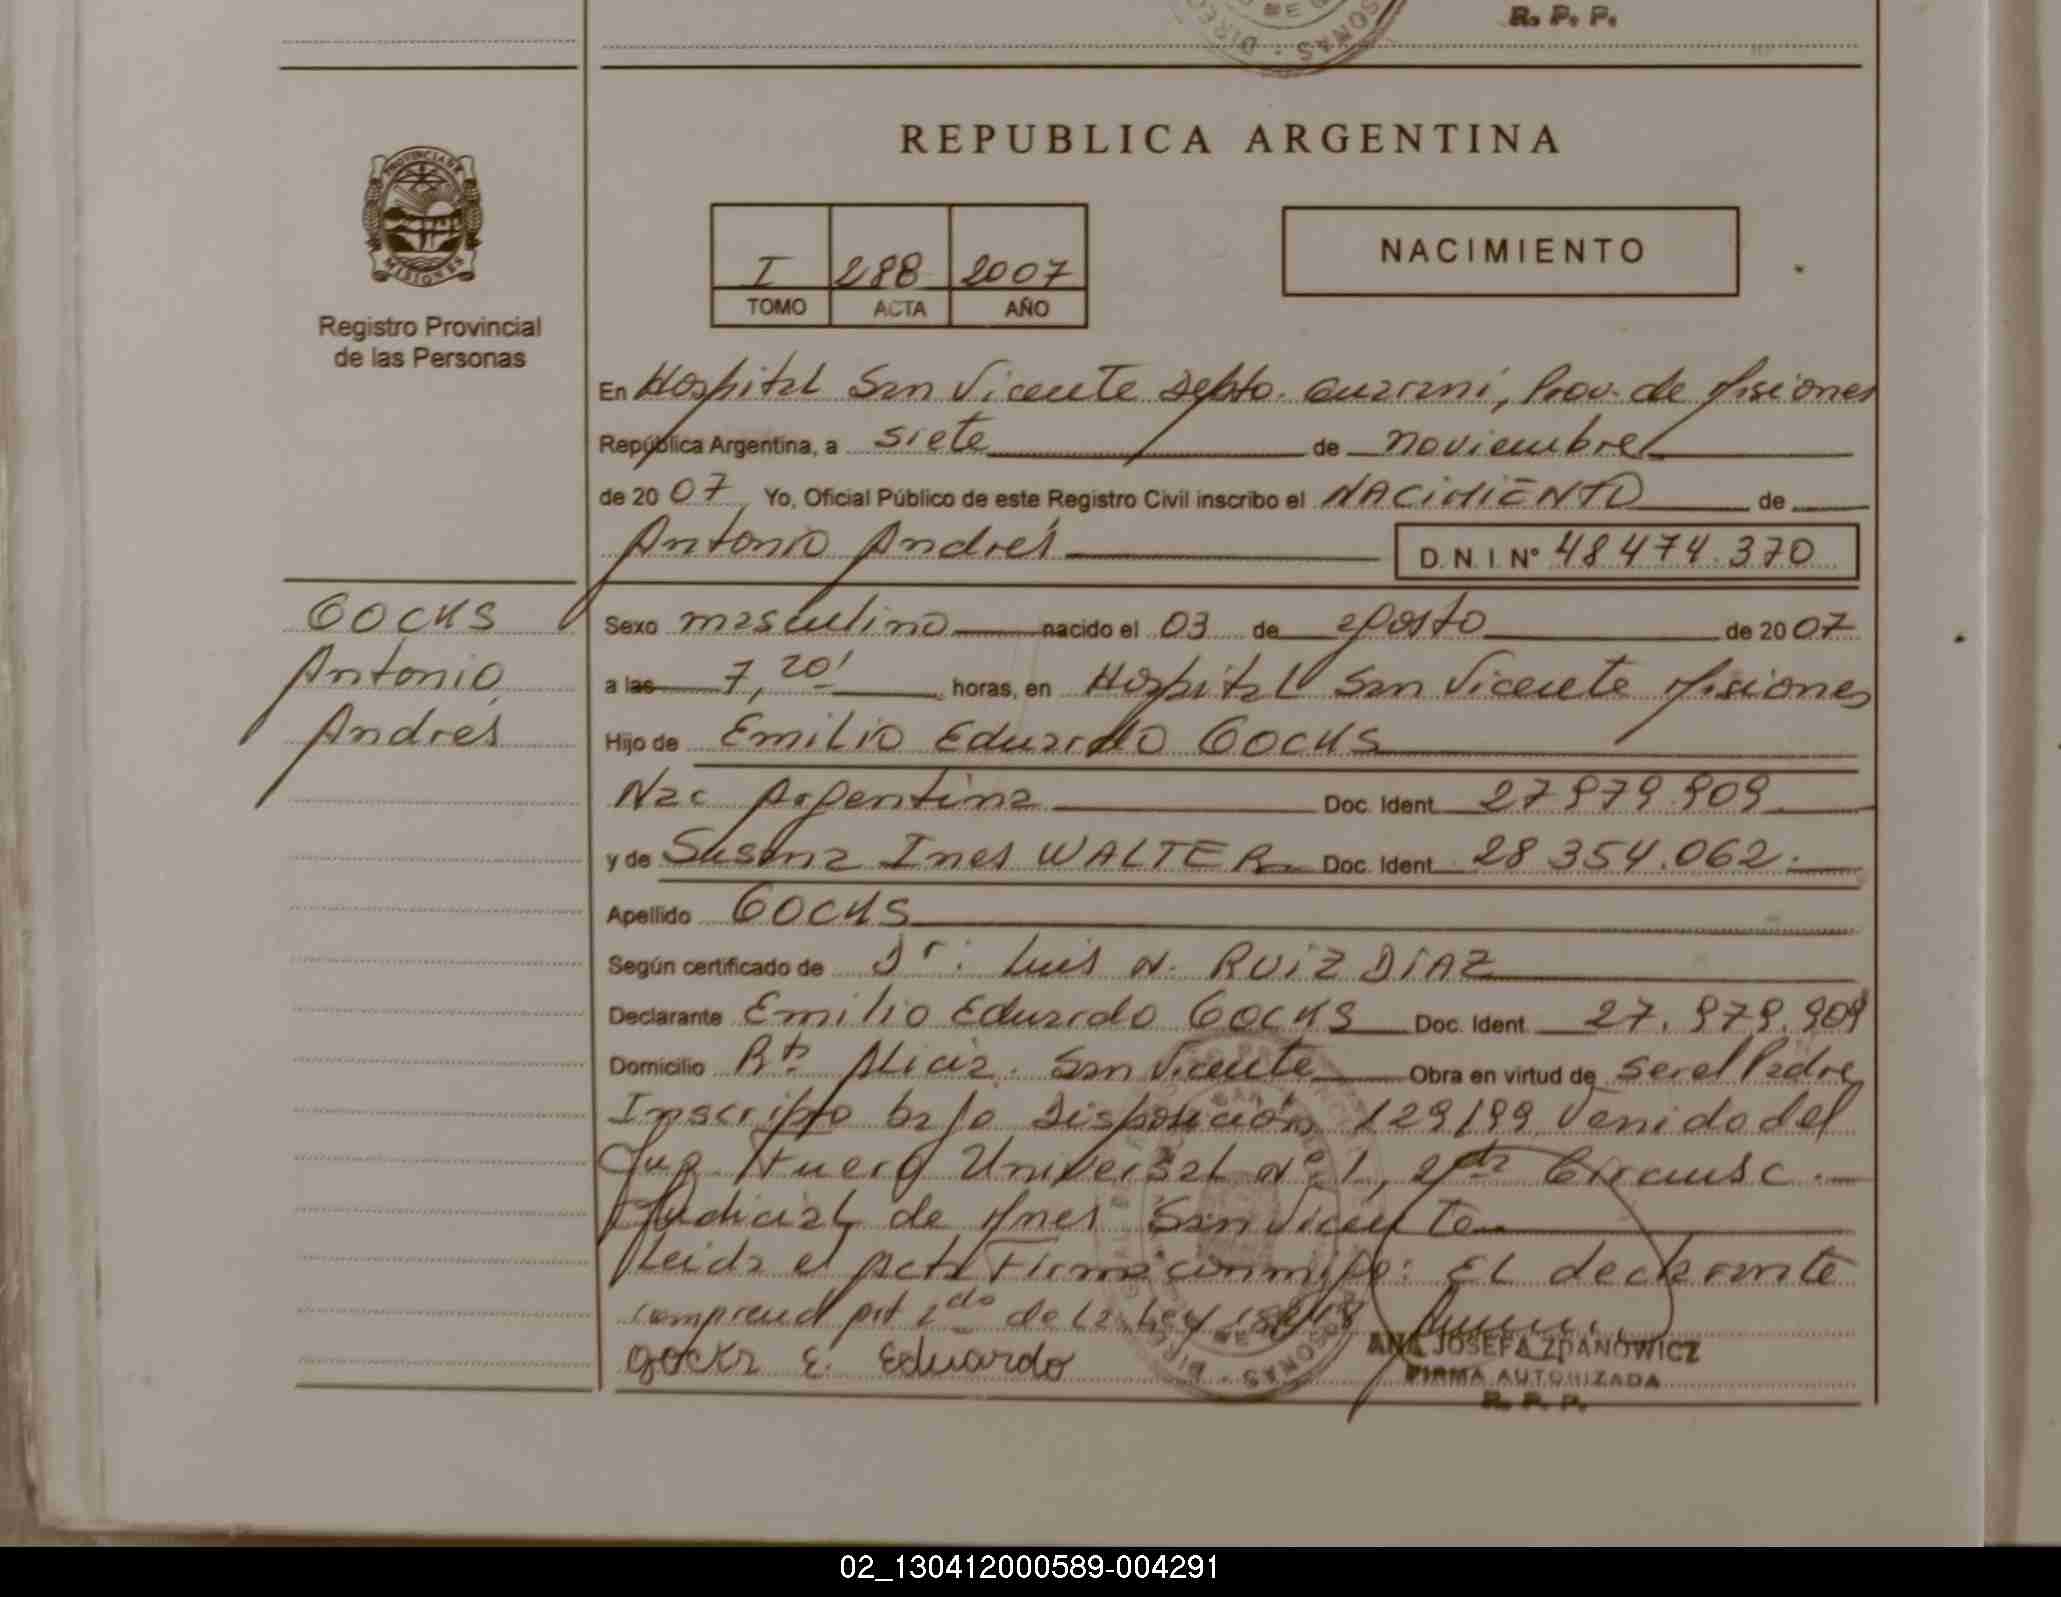 R. P. P.
REPUBLICA ARGENTINA
PROVINCIA DE
MISIONES
Registro Provincial
de las Personas
I 288 2007
TOMO ACTA AÑO
NACIMIENTO
En Hospital San Vicente Depto. Guarani, Prov. de Misiones
República Argentina, a siete de noviembre
de 20 07 Yo, Oficial Público de este Registro Civil inscribo el NACIMIENTO de
Antonio Andrés
D. N. I. Nº 48474.370
GOCKS
Antonio
Andres
Sexo masculino nacido el 03 de agosto de 20 07
a las 7,20' horas, en Hospital San Vicente Misiones
Hijo de Emilio Eduardo GOCKS
Nac Argentina Doc. Ident. 27979.909
y de Susana Ines WALTER Doc. Ident. 28 354.062.
Apellido GOCKS
Según certificado de Dr: Luis N. RUIZ DIAZ
Declarante Emilio Eduardo GOCKS Doc. Ident 27.979.909
Domicilio Rta Alicia. San Vicente Obra en virtud de ser el Padre
Inscripto bajo Disposición 129/99 Venido del
Juz Fuero Universal Nº 1, 2da Circunsc.
Judicial de Mnes San Vicente
Leida el Acta Firma conmigo: El declarante
comprend Art 2do de la Ley
gocks E. Eduardo
ANA JOSEFA ZDANOWICZ
FIRMA AUTORIZADA
R. P. P.
02_130412000589-004291